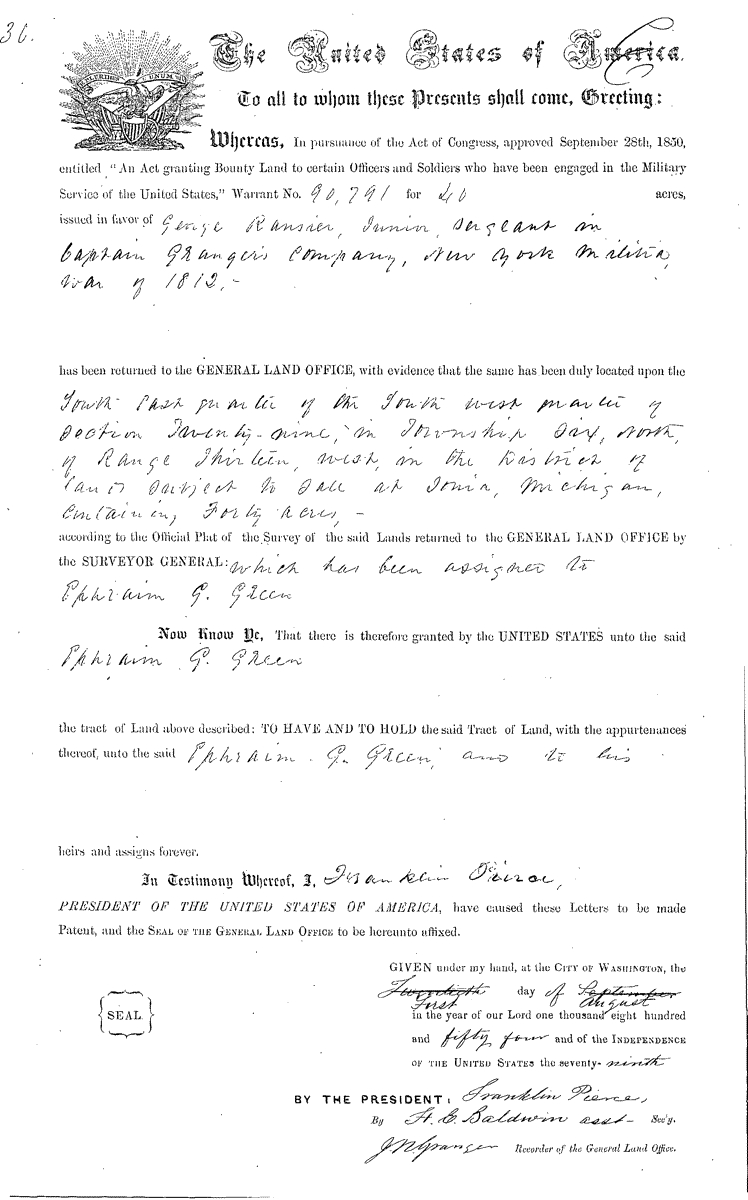 36.
E PLURIBUS UNUM
The United States of America.
To all to whom these Presents shall come, Greeting:
Whereas, In pursuance of the Act of Congress, approved September 28th, 1850,
entitled "An Act granting Bounty Land to certain Officers and Soldiers who have been engaged in the Military
Service of the United States," Warrant No. 90,791 for 40 acres,
issued in favor of George Ransier, Junior, Sergeant in
Captain Granger's Company, New York Militia,
War of 1812,-
has been returned to the GENERAL LAND OFFICE, with evidence that the same has been duly located upon the
South East quarter of the South West quarter of
Section Twenty-nine, in Township Six, North,
of Range Thirteen, West, in the District of
Lands Subject to Sale at Ionia, Michigan,
Containing Forty acres,-
according to the Official Plat of the Survey of the said Lands returned to the GENERAL LAND OFFICE by
the SURVEYOR GENERAL: which has been assigned to
Ephraim G. Green
Now Know Ye, That there is therefore granted by the UNITED STATES unto the said
Ephraim G. Green
the tract of Land above described: TO HAVE AND TO HOLD the said Tract of Land, with the appurtenances
thereof, unto the said Ephraim G. Green, and to his
heirs and assigns forever.
In Testimony Whereof, I, Franklin Pierce,
PRESIDENT OF THE UNITED STATES OF AMERICA, have caused these Letters to be made
Patent, and the SEAL OF THE GENERAL LAND OFFICE to be hereunto affixed.
GIVEN under my hand, at the CITY OF WASHINGTON, the
Twentieth day of September
First August
SEAL
in the year of our Lord one thousand eight hundred
and fifty four and of the INDEPENDENCE
OF THE UNITED STATES the seventy-ninth
BY THE PRESIDENT: Franklin Pierce,
By H. E. Baldwin asst- Sec'y.
J N Granger Recorder of the General Land Office.